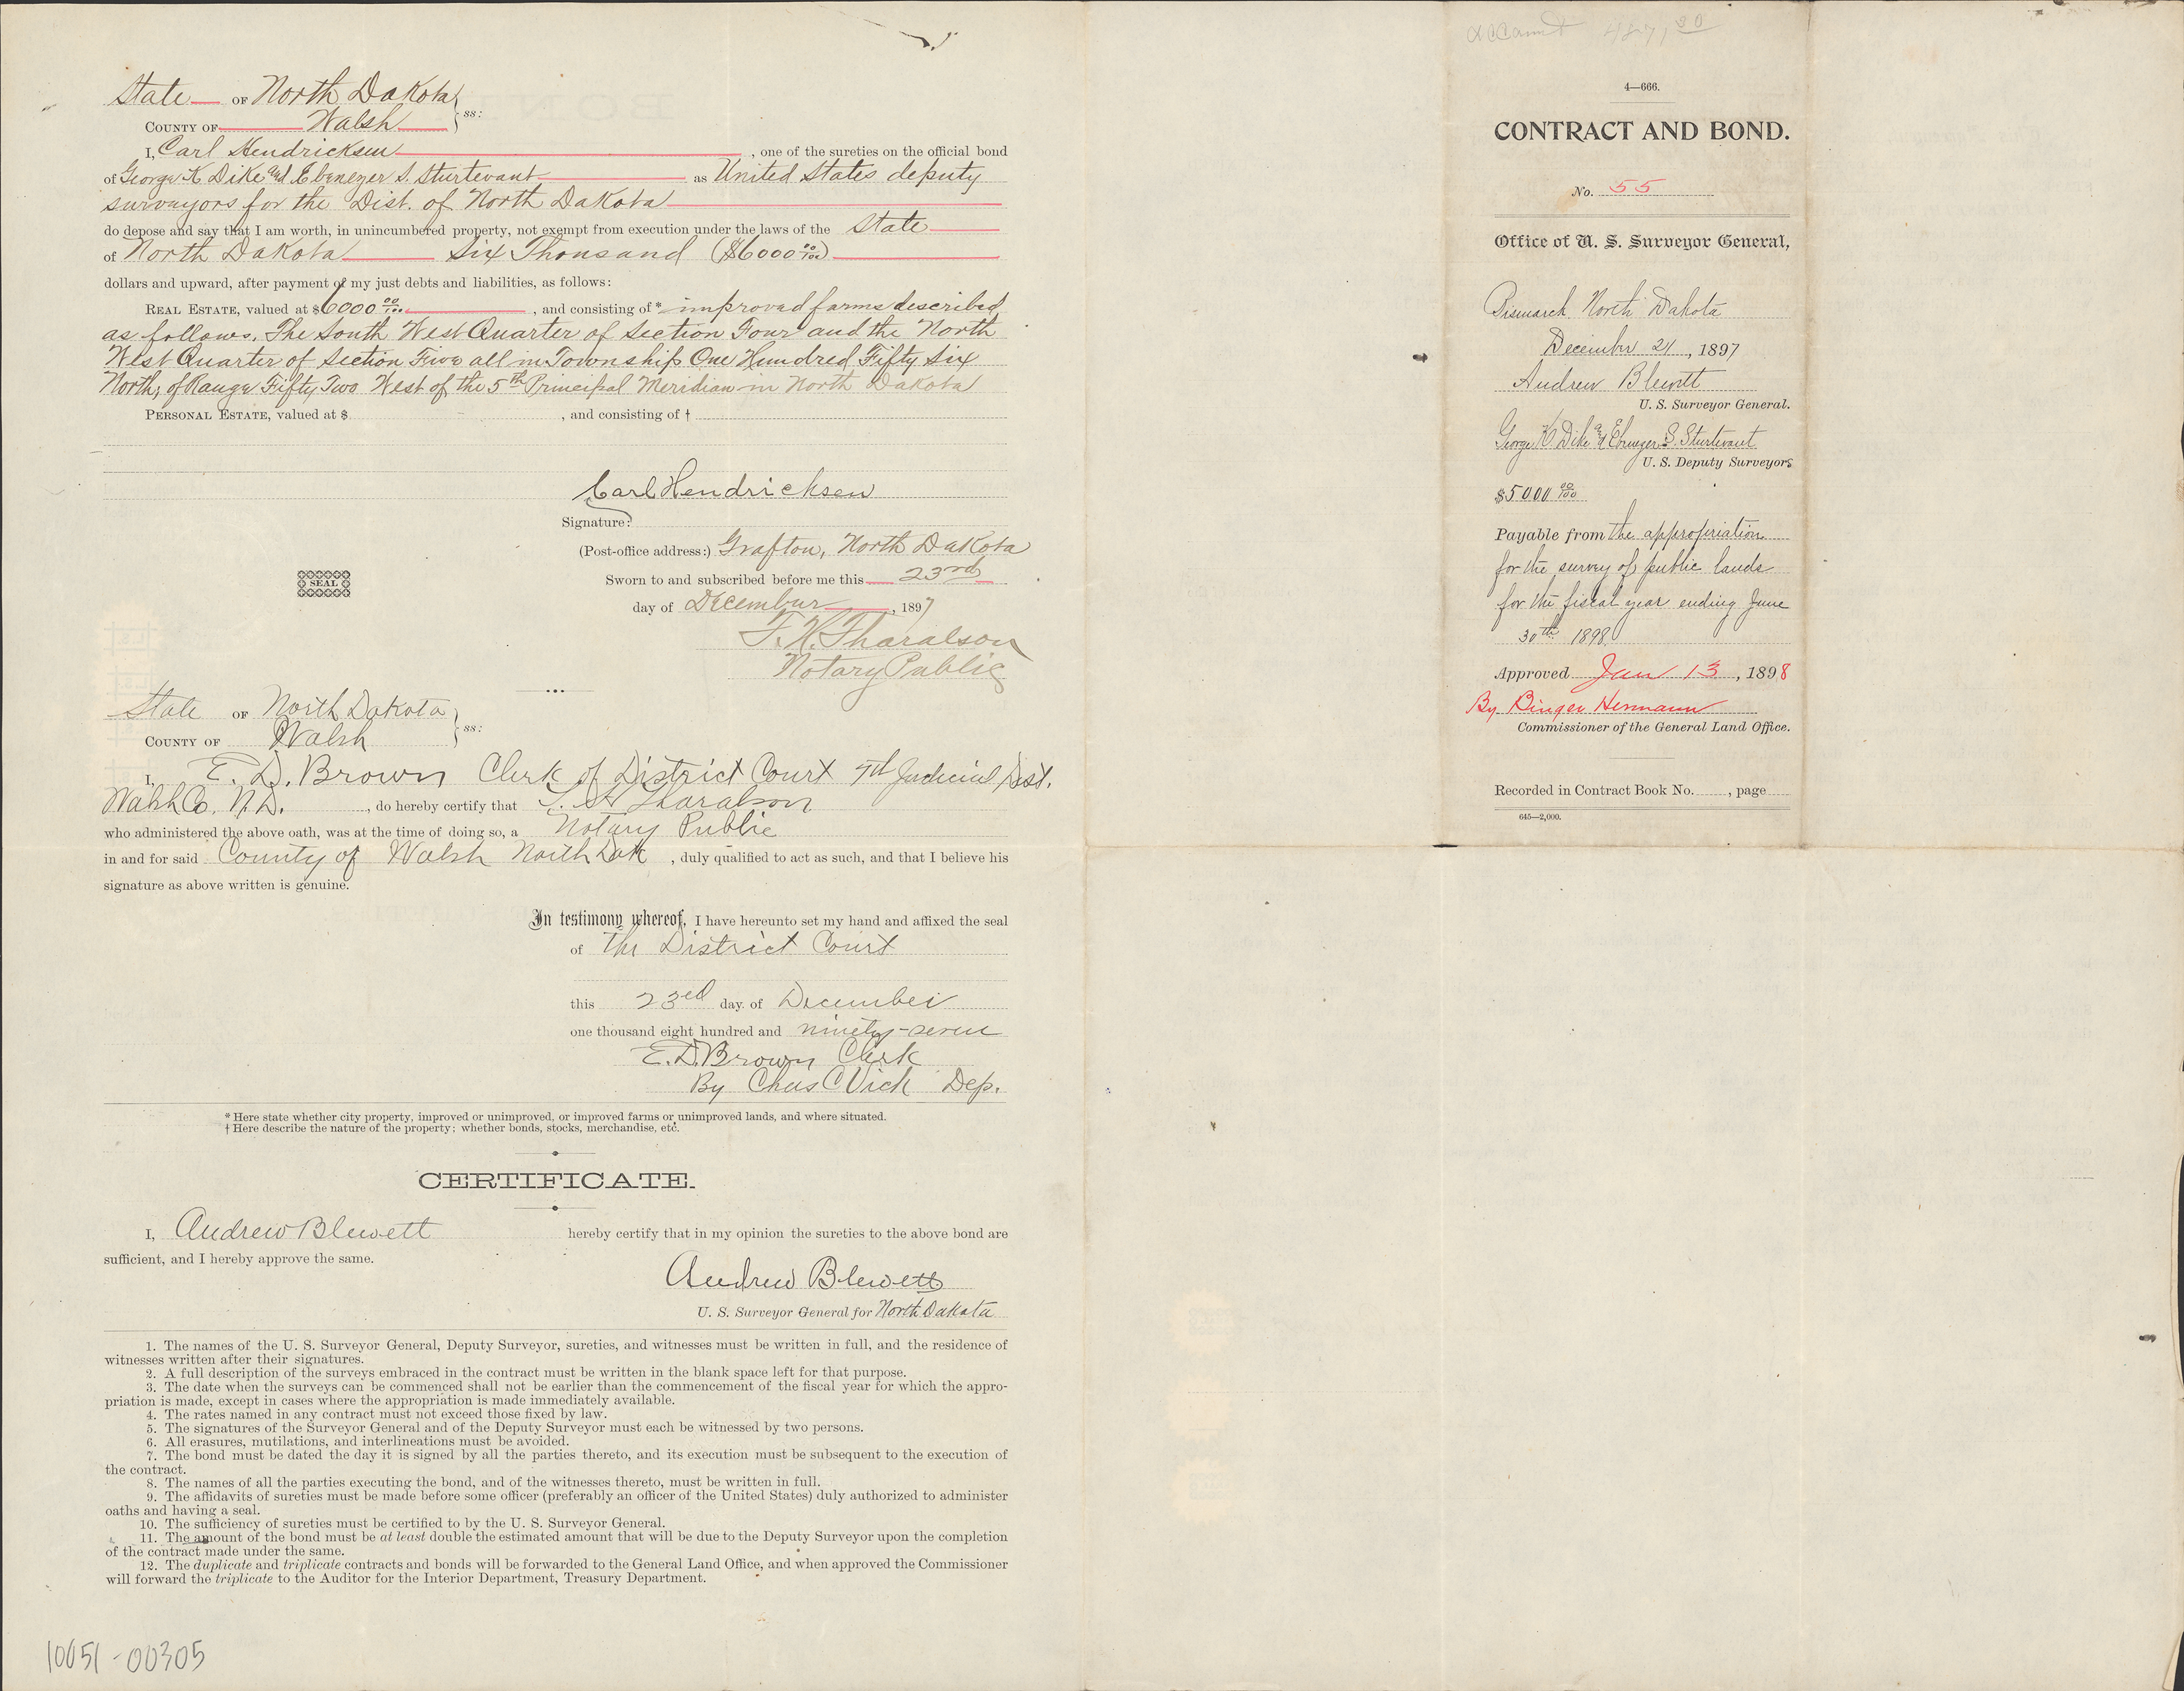 State OF North Dakota
COUNTY OF Walsh } ss:
I, Carl Hendricksen, one of the sureties on the official bond
of George K Dike and Ebenezer S. Sturtevant as United States deputy
surveyors for the Dist. of North Dakota
do depose and say that I am worth, in unincumbered property, not exempt from execution under the laws of the State
of North Dakota Six Thousand ($6000 00/100)
dollars and upward, after payment of my just debts and liabilities, as follows:
REAL ESTATE, valued at $6000 00/100, and consisting of* improved farms described
as follows. The South West Quarter of Section Four and the North
West Quarter of Section Five all in Township One Hundred Fifty Six
North, of Range Fifty Two West of the 5th Principal Meridian in North Dakota
PERSONAL ESTATE, valued at $ , and consisting of †
Carl Hendricksen
Signature:
(Post-office address:) Grafton, North Dakota
Sworn to and subscribed before me this 23rd
day of December, 1897
SEAL
T. H. Tharalson
Notary Public
State OF North Dakota
COUNTY OF Walsh } ss:
I, E. D. Brown Clerk of District Court 7th Judicial Dist.
Walsh Co. N.D., do hereby certify that T. H. Tharalson
who administered the above oath, was at the time of doing so, a Notary Public
in and for said County of Walsh North Dak, duly qualified to act as such, and that I believe his
signature as above written is genuine.
In testimony whereof, I have hereunto set my hand and affixed the seal
of the District Court
this 23rd day of December
one thousand eight hundred and ninety-seven
E. D. Brown Clerk
By Chas C Vick Dep.
* Here state whether city property, improved or unimproved, or improved farms or unimproved lands, and where situated.
† Here describe the nature of the property; whether bonds, stocks, merchandise, etc.
CERTIFICATE.
I, Andrew Blewett hereby certify that in my opinion the sureties to the above bond are
sufficient, and I hereby approve the same.
Andrew Blewett
U. S. Surveyor General for North Dakota
1. The names of the U. S. Surveyor General, Deputy Surveyor, sureties, and witnesses must be written in full, and the residence of
witnesses written after their signatures.
2. A full description of the surveys embraced in the contract must be written in the blank space left for that purpose.
3. The date when the surveys can be commenced shall not be earlier than the commencement of the fiscal year for which the appro-
priation is made, except in cases where the appropriation is made immediately available.
4. The rates named in any contract must not exceed those fixed by law.
5. The signatures of the Surveyor General and of the Deputy Surveyor must each be witnessed by two persons.
6. All erasures, mutilations, and interlineations must be avoided.
7. The bond must be dated the day it is signed by all the parties thereto, and its execution must be subsequent to the execution of
the contract.
8. The names of all the parties executing the bond, and of the witnesses thereto, must be written in full.
9. The affidavits of sureties must be made before some officer (preferably an officer of the United States) duly authorized to administer
oaths and having a seal.
10. The sufficiency of sureties must be certified to by the U. S. Surveyor General.
11. The amount of the bond must be at least double the estimated amount that will be due to the Deputy Surveyor upon the completion
of the contract made under the same.
12. The duplicate and triplicate contracts and bonds will be forwarded to the General Land Office, and when approved the Commissioner
will forward the triplicate to the Auditor for the Interior Department, Treasury Department.
10051-00305
4—666.
CONTRACT AND BOND.
No. 55
Office of U. S. Surveyor General,
Bismarck North Dakota
December 21, 1897
Andrew Blewett
U. S. Surveyor General.
George K. Dike and Ebenezer S. Sturtevant
U. S. Deputy Surveyors
$5000 00/100
Payable from the appropriation
for the survey of public lands
for the fiscal year ending June
30th 1898
Approved Jan 13, 1898
By Binger Hermann
Commissioner of the General Land Office.
Recorded in Contract Book No. , page
645—2,000.